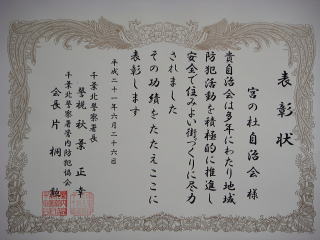 表彰状
宮の杜自治会 様
貴自治会は多年にわたり地域
防犯活動を積極的に推進し
安全で住みよい街づくりに尽力
されました
その功績をたたえここに
表彰します
平成二十一年六月二十六日
千葉北警察署長
警視 秋葉 正幸
千葉北警察署管内防犯協会
会長 片桐 勲